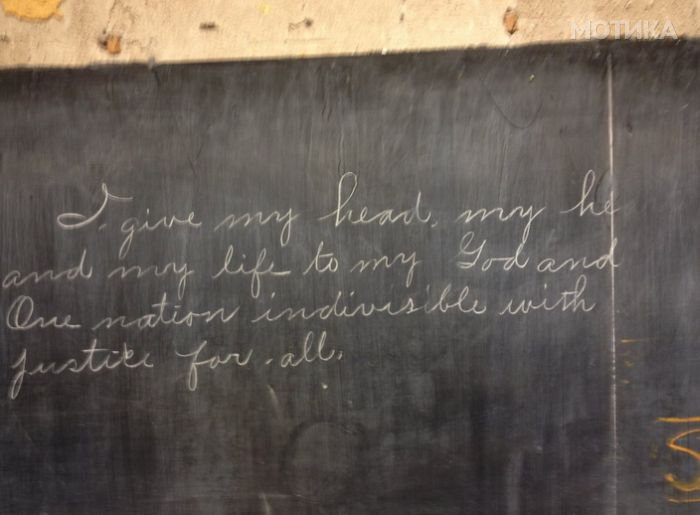 МОТИКА
I give my head, my he
and my life to my God and
One nation indivisible with
justice for all.